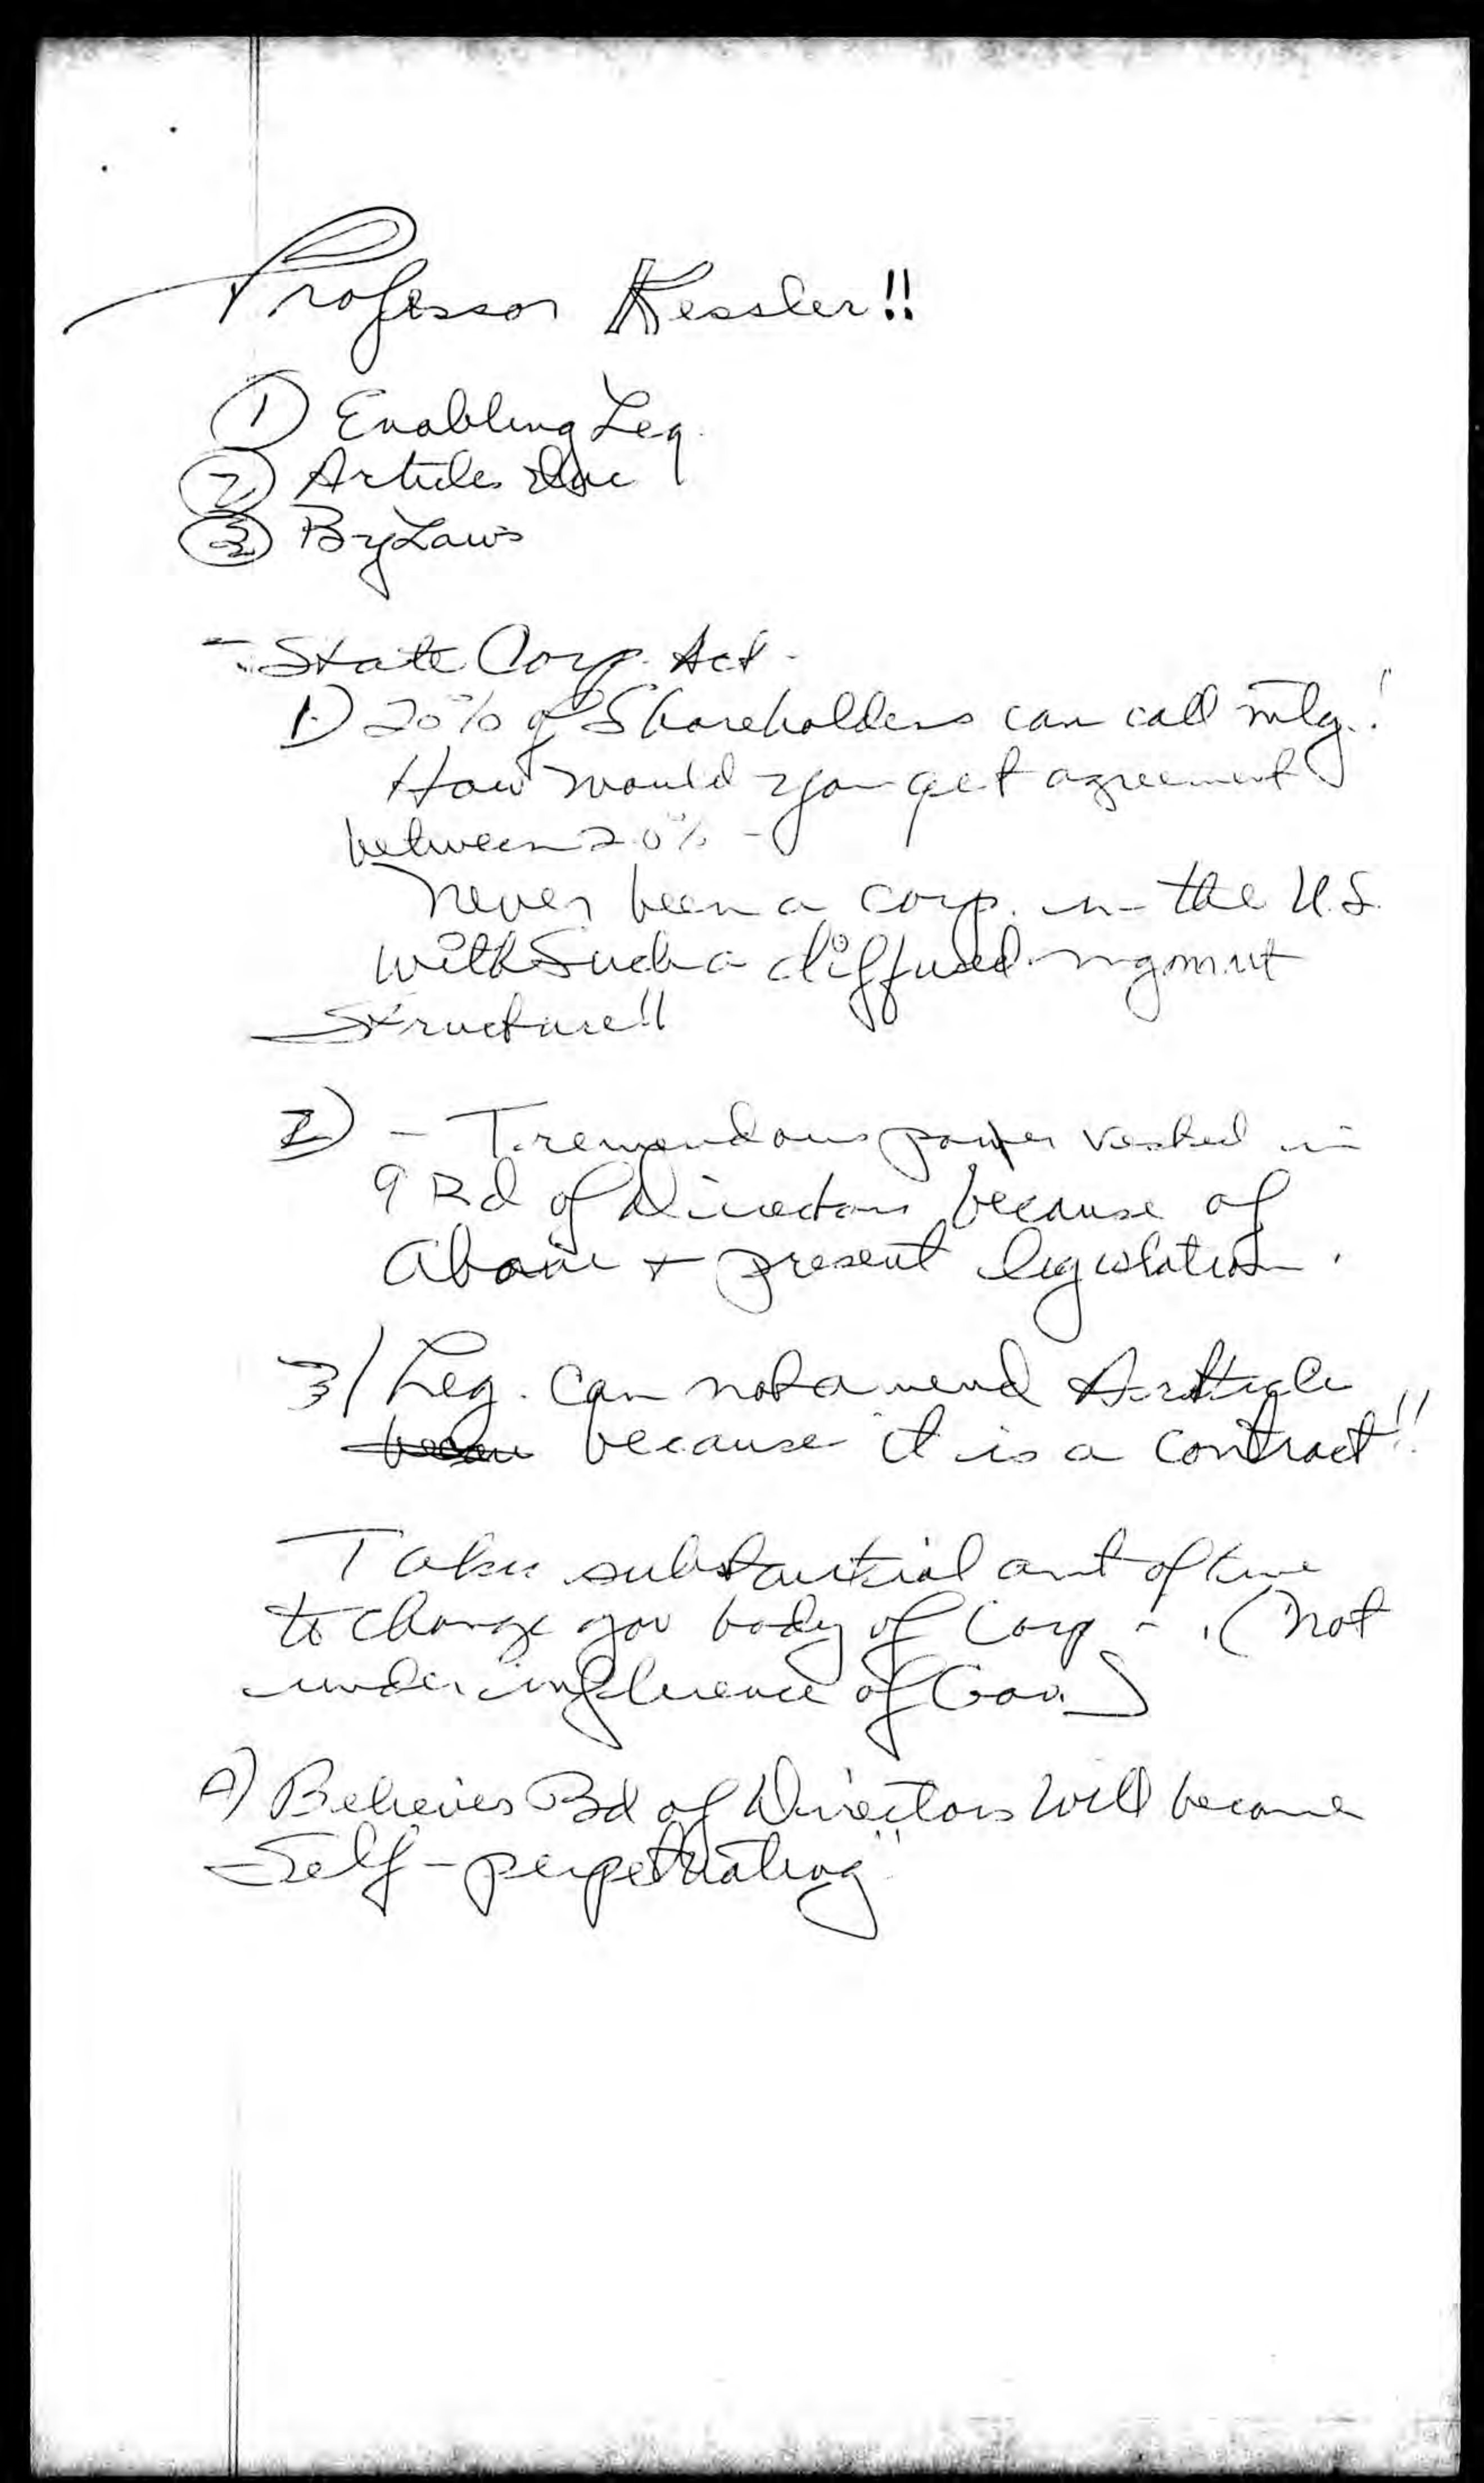 Professor Kessler!!
① Enabling Leg.
② Articles Inc
③ ByLaws
- State Corp. Act -
1) 20% of Shareholders can call mtg.!
How would you get agreement
between 20% -
Never been a corp. in the U.S.
with such a diffused mgmnt
Structure!!
2) - Tremendous power vested in
9 Bd of Directors because of
above + present legislation.
3) Leg. can not amend Article
because it is a contract!!
Takes substantial amt of time
to change gov body of Corp - (not
under influence of Gov.)
A) Believes Bd of Directors will become
Self-perpetuating"